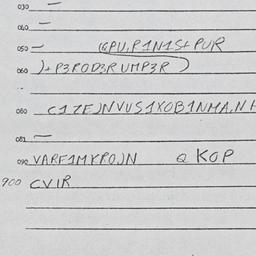 030 —
040 —
050 — (GPU,P1N1S+PUR
060 )+P3ROD3RUMP3R)
080 C1ZE)NVUS1XOB1NMA.NH
081 —
090 VARF1MYRO)N Q KOP
900 CVIR